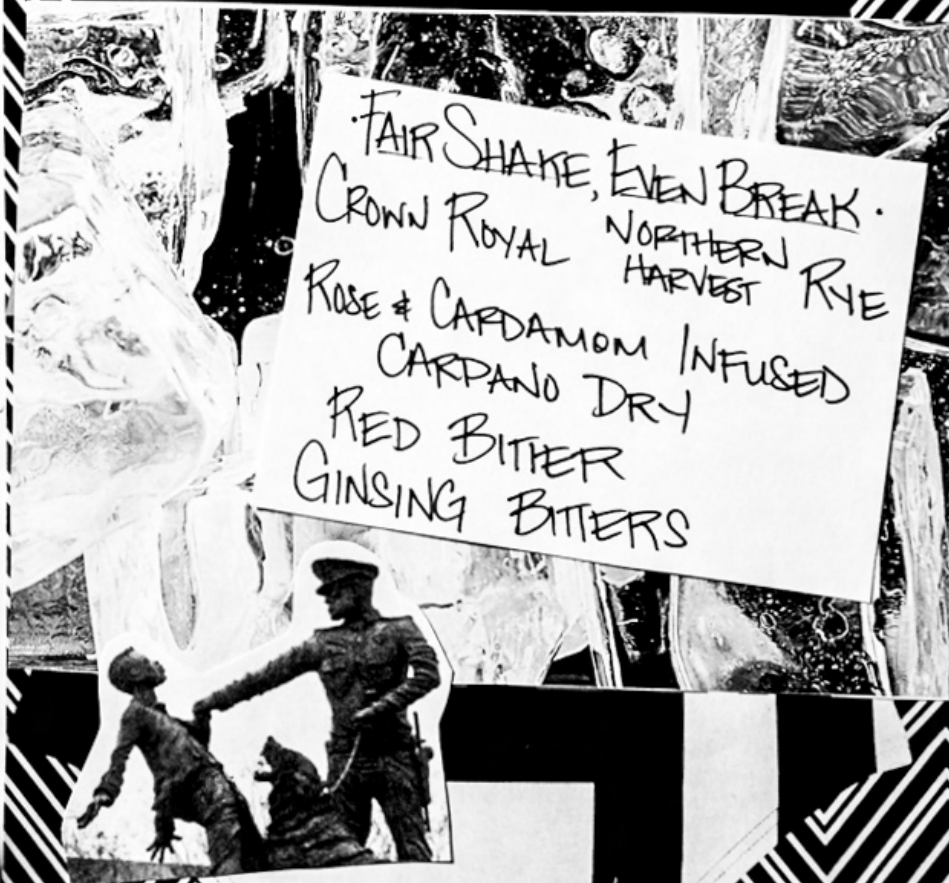 ·FAIR SHAKE, EVEN BREAK·
CROWN ROYAL NORTHERN HARVEST RYE
ROSE & CARDAMOM INFUSED
CARPANO DRY
RED BITTER
GINSING BITTERS